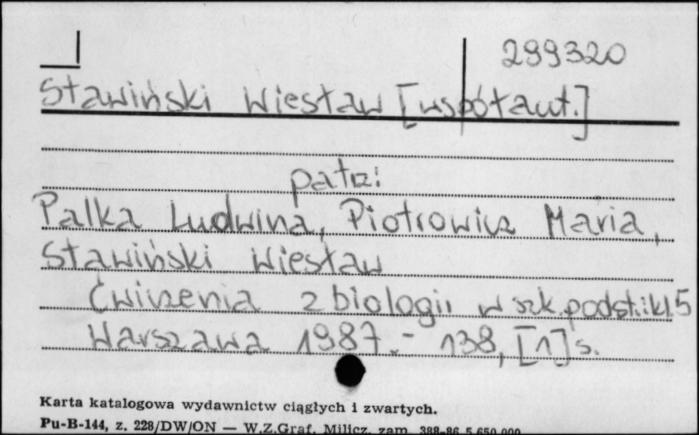 299320
Stawiński Wiesław [współaut.]
patrz:
Palka Ludwina, Piotrowicz Maria,
Stawiński Wiesław
Ćwiczenia z biologii w szk. podst.: kl. 5
Warszawa 1987.- 138, [1] s.
Karta katalogowa wydawnictw ciągłych i zwartych.
Pu-B-144, z. 228/DW/ON — W.Z.Graf. Milicz, zam. 388-86 5.650.000